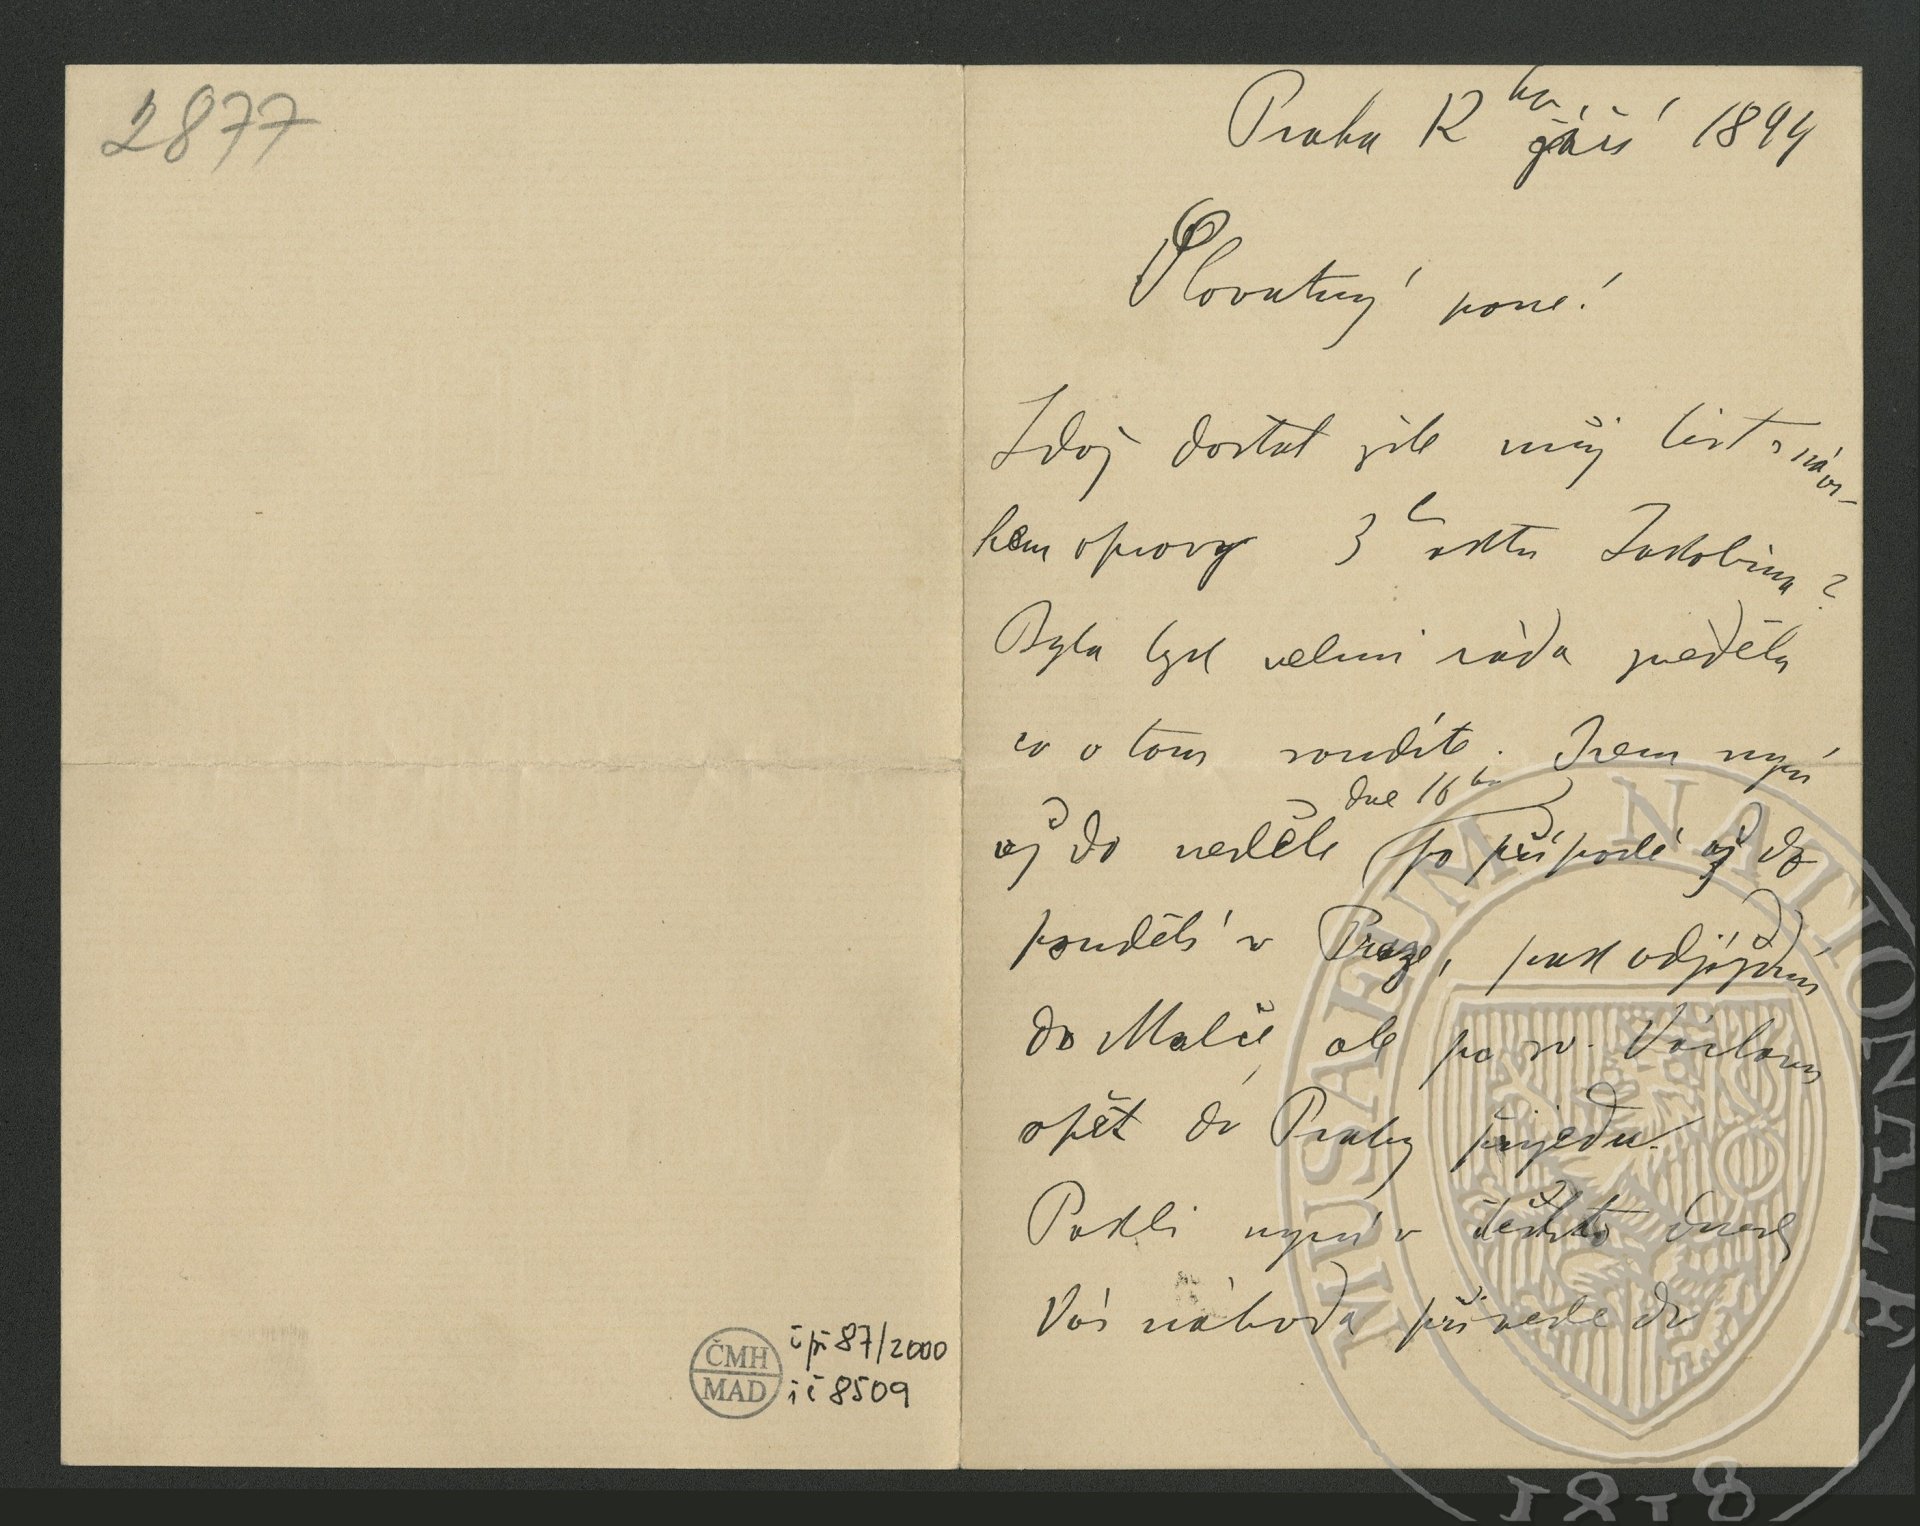 2877
Praha 12ho září 1894
Slovutný pane!
Zdaž dostal jste můj list s náv-
hem opravy 3ho aktu Jakobína?
Byla bych velmi ráda zvěděla
co o tom soudíte. Jsem nyní
až do neděle dne 16ho (po případě až do
pondělí v Praze, pak odjíždím
do Malče ale po sv. Václavu
opět do Prahy přijedu.
Pakli nyní v těchto dnech
Vás náhoda přivede do
ČMH
MAD
č př 87/2000
i č 8509
MUSAEUM NATIONALE
1818